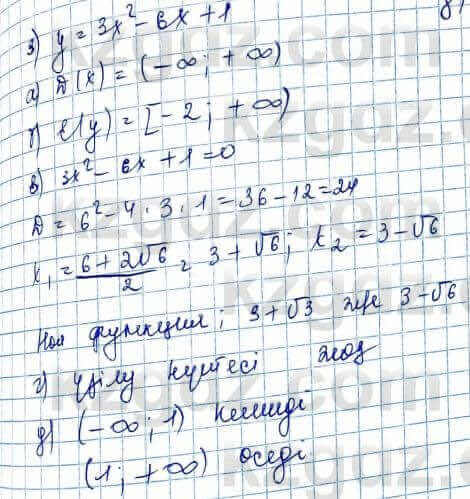 3) y = 3x² - 6x + 1
а) D(x) = (-∞; +∞)
E(y) = [-2; +∞)
в) 3x² - 6x + 1 = 0
D = 6² - 4 · 3 · 1 = 36 - 12 = 24
x₁ = (6 + 2√6)/2 = 3 + √6; x₂ = 3 - √6
Ноль функция; 3 + √3 және 3 - √6
г) үзілу нүктесі жоқ
д) (-∞; 1) кемиді
(1; +∞) өседі
kzguz.com